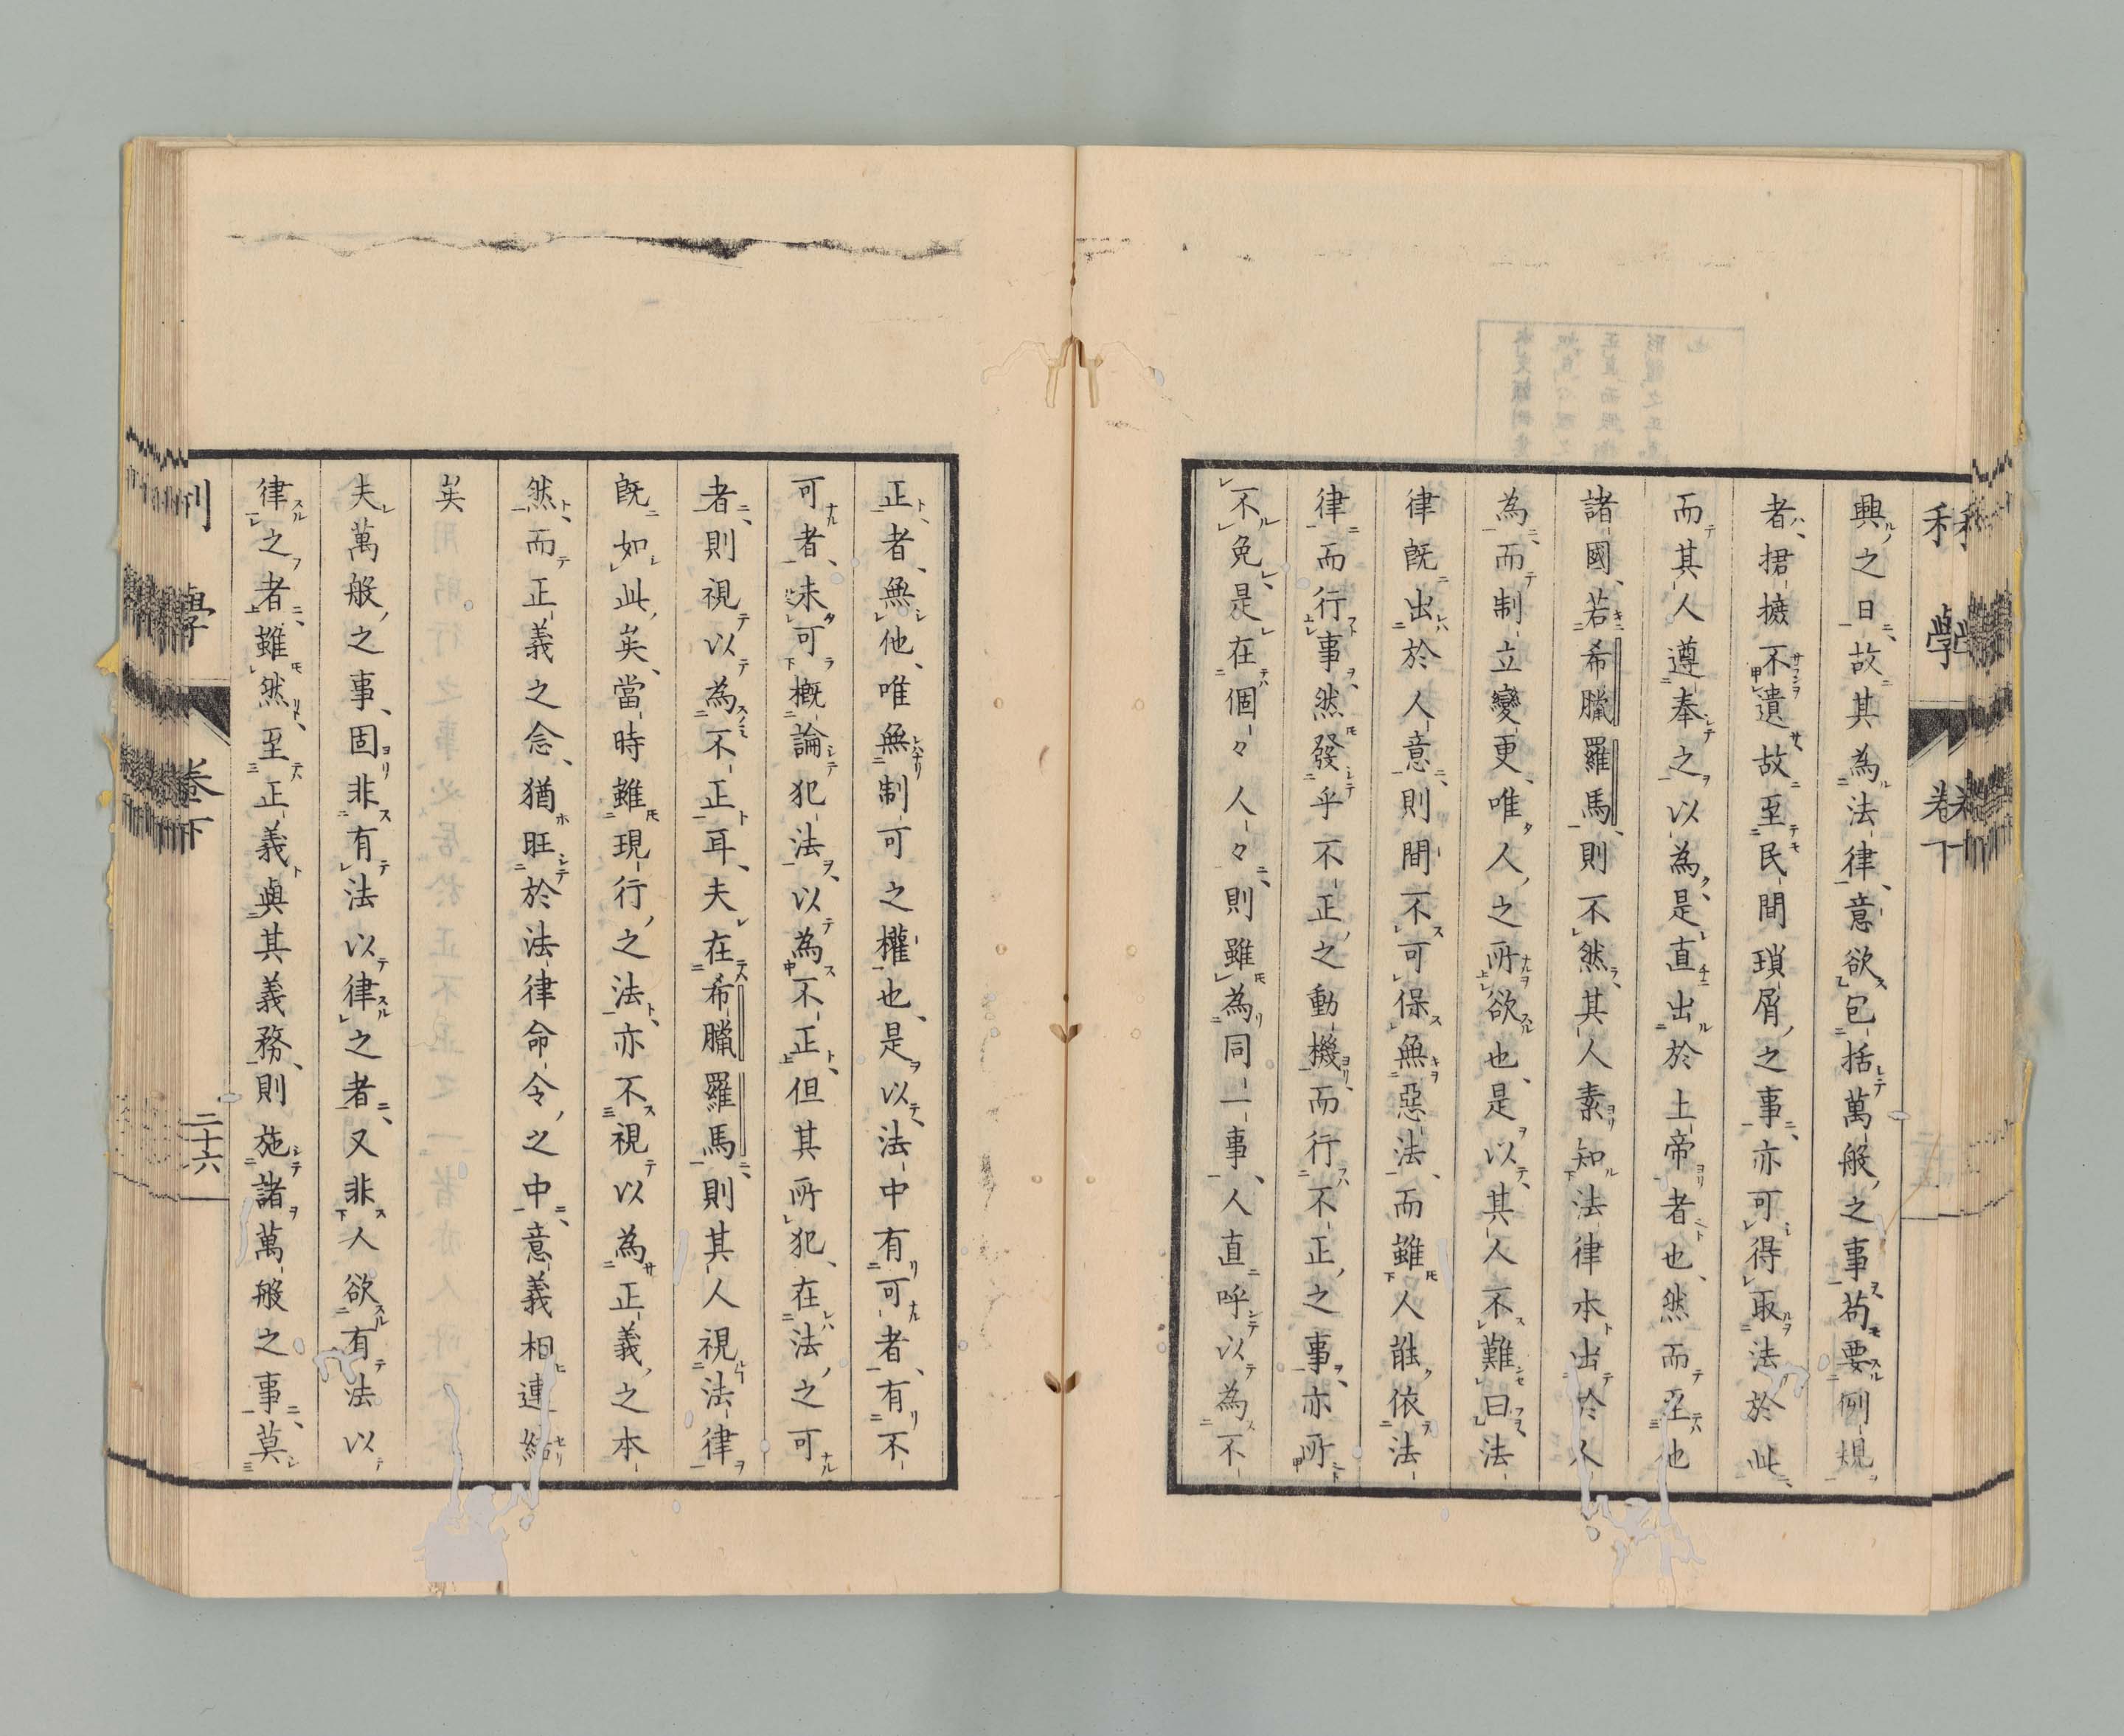 興之日故其為法律意欲包括萬般之事苟要例規
者捃摭不遺故至民間瑣屑之事亦可得取法於此
而其人遵奉之以為是直出於上帝者也然而至他
諸國若希臘羅馬則不然其人素知法律本出於人
為而制立變更唯人之所欲也是以其人不難曰法
律既出於人意則間不可保無惡法而雖人能依法
律而行事然發乎不正之動機而行不正之事亦所
不免是在個々人々則雖為同一事人直呼以為不
正者無他唯無制可之權也是以法中有可者有不
可者未可概論犯法以為不正但其所犯在法之可
者則視以為不正耳夫在希臘羅馬則其人視法律
既如此矣當時雖現行之法亦不視以為正義之本
然而正義之念猶旺於法律命令之中意義相連結
矣
夫萬般之事固非有法以律之者又非人欲有法以
律之者雖然至正義與其義務則施諸萬般之事莫
卷下
二十六